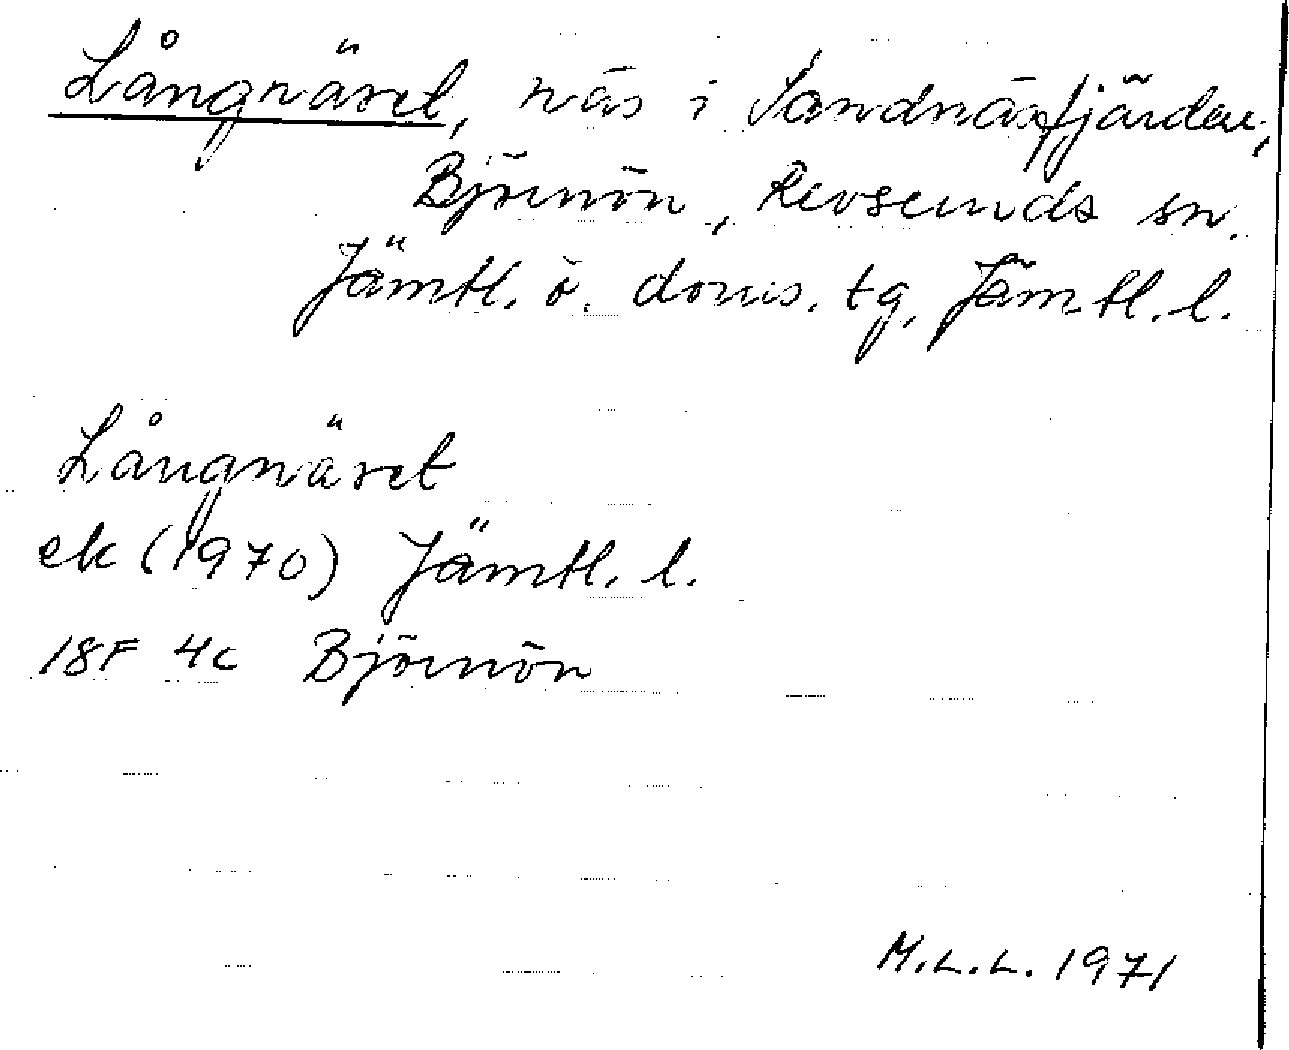 Långnäset, näs i Sandnäsfjärden,
Björnön, Revsunds sn.
Jämtl. ö. doms. tg, Jämtl. l.
Långnäset
ek (1970) Jämtl. l.
18F 4c Björnön
M.L.L. 1971